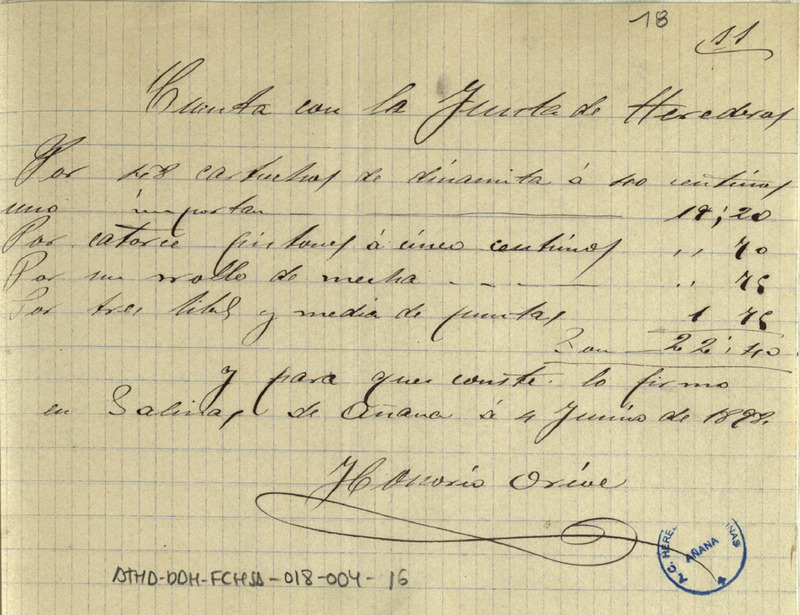 18
11
Cuenta con la Junta de Herederos
Por 48 cartuchos de dinamita á 40 centimos
uno importan 19,20
Por catorce pistones á cinco centimos ,, 70
Por un rrollo de mecha ,, 75
Por tres libs y media de puntas 1 75
Son 22,40
y para que conste lo firmo
en Salinas de Añana á 4 Junio de 1898.
Honorio Orive
AÑANA
ATHA-DAH-FCHSA-018-004-16